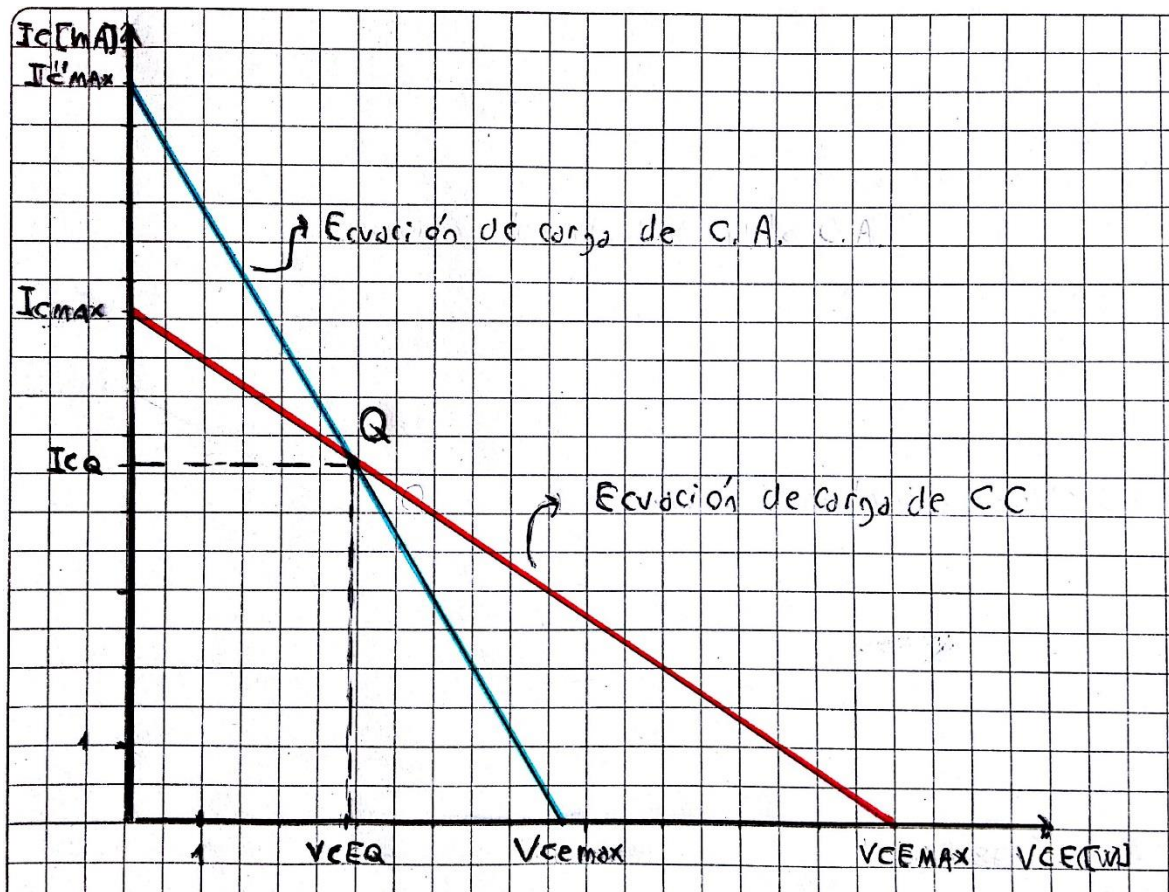 Ic[mA]
Ic"MAX
Ecuación de carga de C.A. C.A.
IcMAX
Q
IcQ
Ecuación de carga de CC
1
1
VCEQ
Vcemax
VCEMAX
VCE[W]